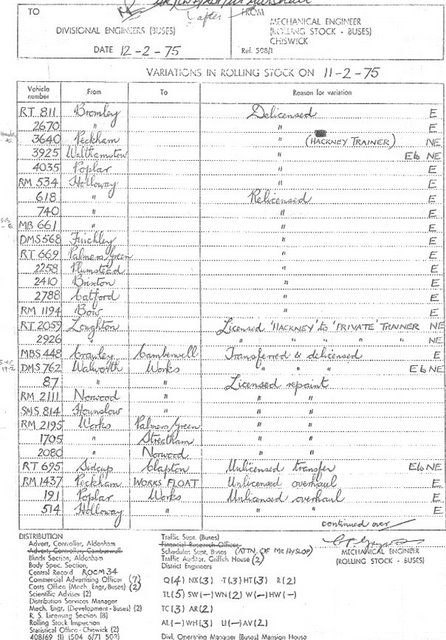 TO
FROM
DIVISIONAL ENGINEERS (BUSES)
MECHANICAL ENGINEER
(ROLLING STOCK - BUSES)
CHISWICK
DATE 12-2-75
Ref. 598/1
VARIATIONS IN ROLLING STOCK ON 11-2-75
Vehicle number From To Reason for variation
RT 811 Bromley Delicensed E
2670 " " E
3640 Peckham " (HACKNEY TRAINER) NE
3925 Walthamstow " Eb NE
4035 Poplar " E
RM 534 Holloway " E
618 " Relicensed E
740 " " E
MB 661 " " E
DMS 568 Finchley " E
RT 669 Palmers Green " E
2258 Plumstead " E
2410 Brixton " E
2788 Catford " E
RM 1194 Bow " E
RT 2059 Loughton Licensed 'HACKNEY' to 'PRIVATE' TRAINER NE
2926 " " " " " " NE
MBS 448 Crawley Camberwell Transferred & delicensed E
DMS 762 Walworth Works " " " Eb NE
87 " " Licensed repaint
RM 2111 Norwood " " "
SMS 814 Hounslow " " "
RM 2195 Works Palmers Green " "
1705 " Streatham " "
2080 " Norwood " "
RT 695 Sidcup Clapton Unlicensed transfer Eb NE
RM 1437 Peckham WORKS FLOAT Unlicensed overhaul E
191 Poplar Works Unlicensed overhaul E
514 Holloway " " " E
continued over
DISTRIBUTION
Advert. Controller, Aldenham
Advert. Controller Camberwell
Blinds Section, Aldenham
Body Spec. Section,
Central Record ROOM 34
Commercial Advertising Officer (7)
Costs Office (Mech. Engr. Buses) (2)
Scientific Adviser (2)
Distribution Services Manager
Mech. Engr. (Development - Buses) (2)
R. S. Licensing Section (8)
Rolling Stock Inspection
Statistical Office - Chiswick (2)
Traffic Supt. (Buses)
Financial Research Officer
Schedules Supt. Buses
Traffic Auditor, Griffith House (2)
District Engineers
Q(4) NX(3) T(3) HT(3) R(2)
TL(5) SW(-) WN(2) W(-) HW(-)
TC(3) AR(2)
AL(-) WH(3) U(-) AV(2)
Divl. Operating Manager (Buses) Mansion House
MECHANICAL ENGINEER
(ROLLING STOCK - BUSES)